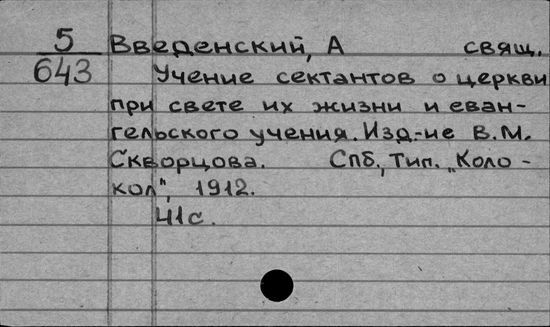 5 Введенский, А свящ.
643 Учение сектантов о церкви
при свете их жизни и еван-
гельского учения. Изд-ие В.М.
Скворцова. Спб., Тип. „Коло-
кол", 1912.
41с.